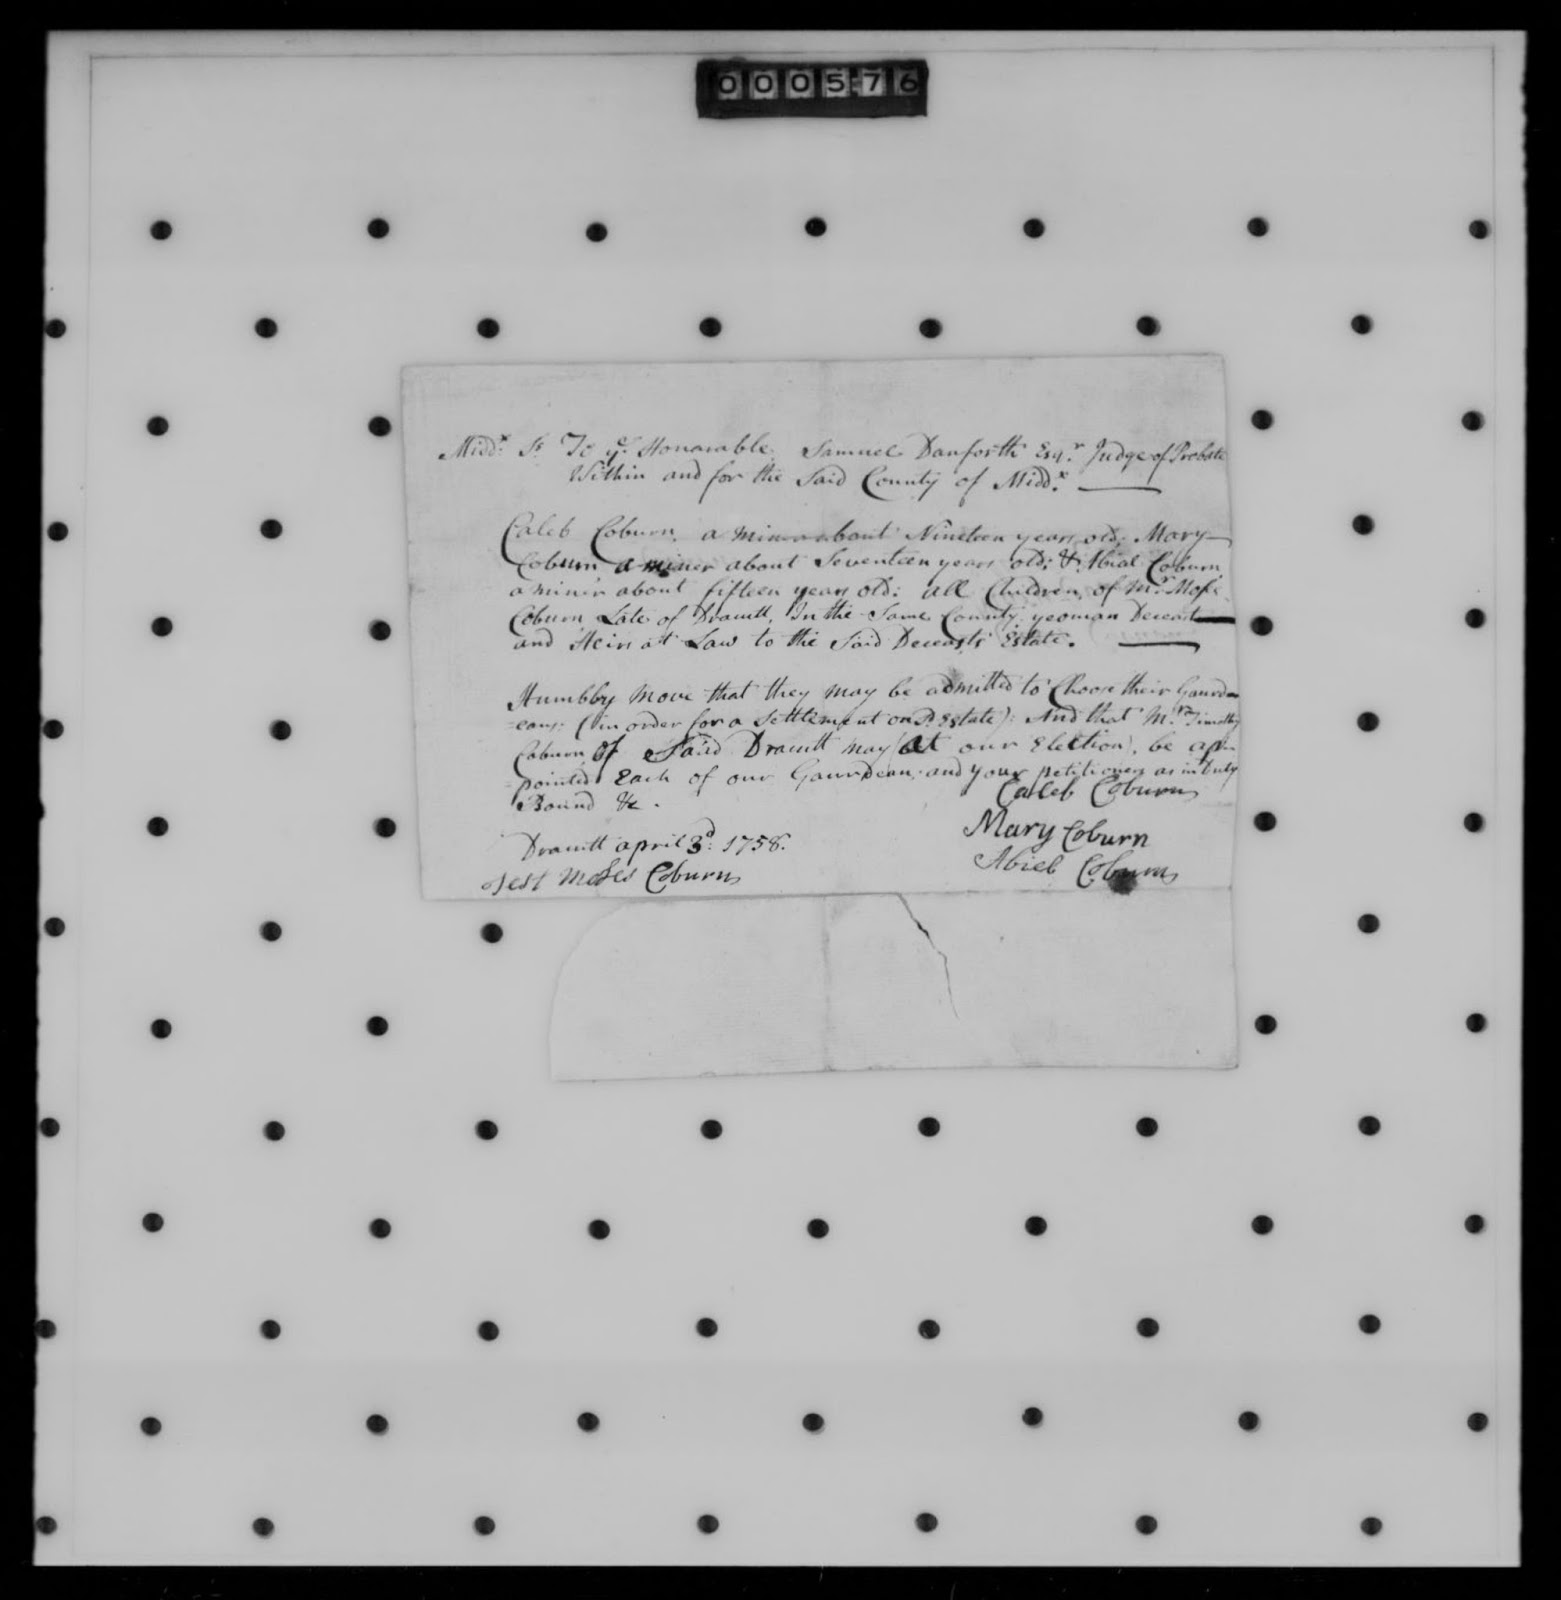 000576
Midd.x Ss To ye. Honarable Samuel Danforth Esq.r Judge of Probate
Within and for the Said County of Midd.x
Caleb Coburn, a minor about Nineteen years old; Mary
Coburn a miner about Seventeen years old; & Abial Coburn
a minir about fifteen years old: all Children of Mr. Moses
Coburn Late of Dracutt, In the Same County yeoman Deceast
and Heirs at Law to the Said Deceasts Estate.
Humbby move that they may be admitted to Choose their Gaurde
=eans: (in order for a settlement on sd. Estate): And that Mr. Timothy
Coburn of Said Dracutt may (at our Election), be ap=
=pointed Each of our Gaurdean; and your petitioners as in Duty
Bound &c.
Caleb Coburn
Mary Coburn
Dracutt april 3d: 1758.
Abieb Coburn
Test Moses Coburn